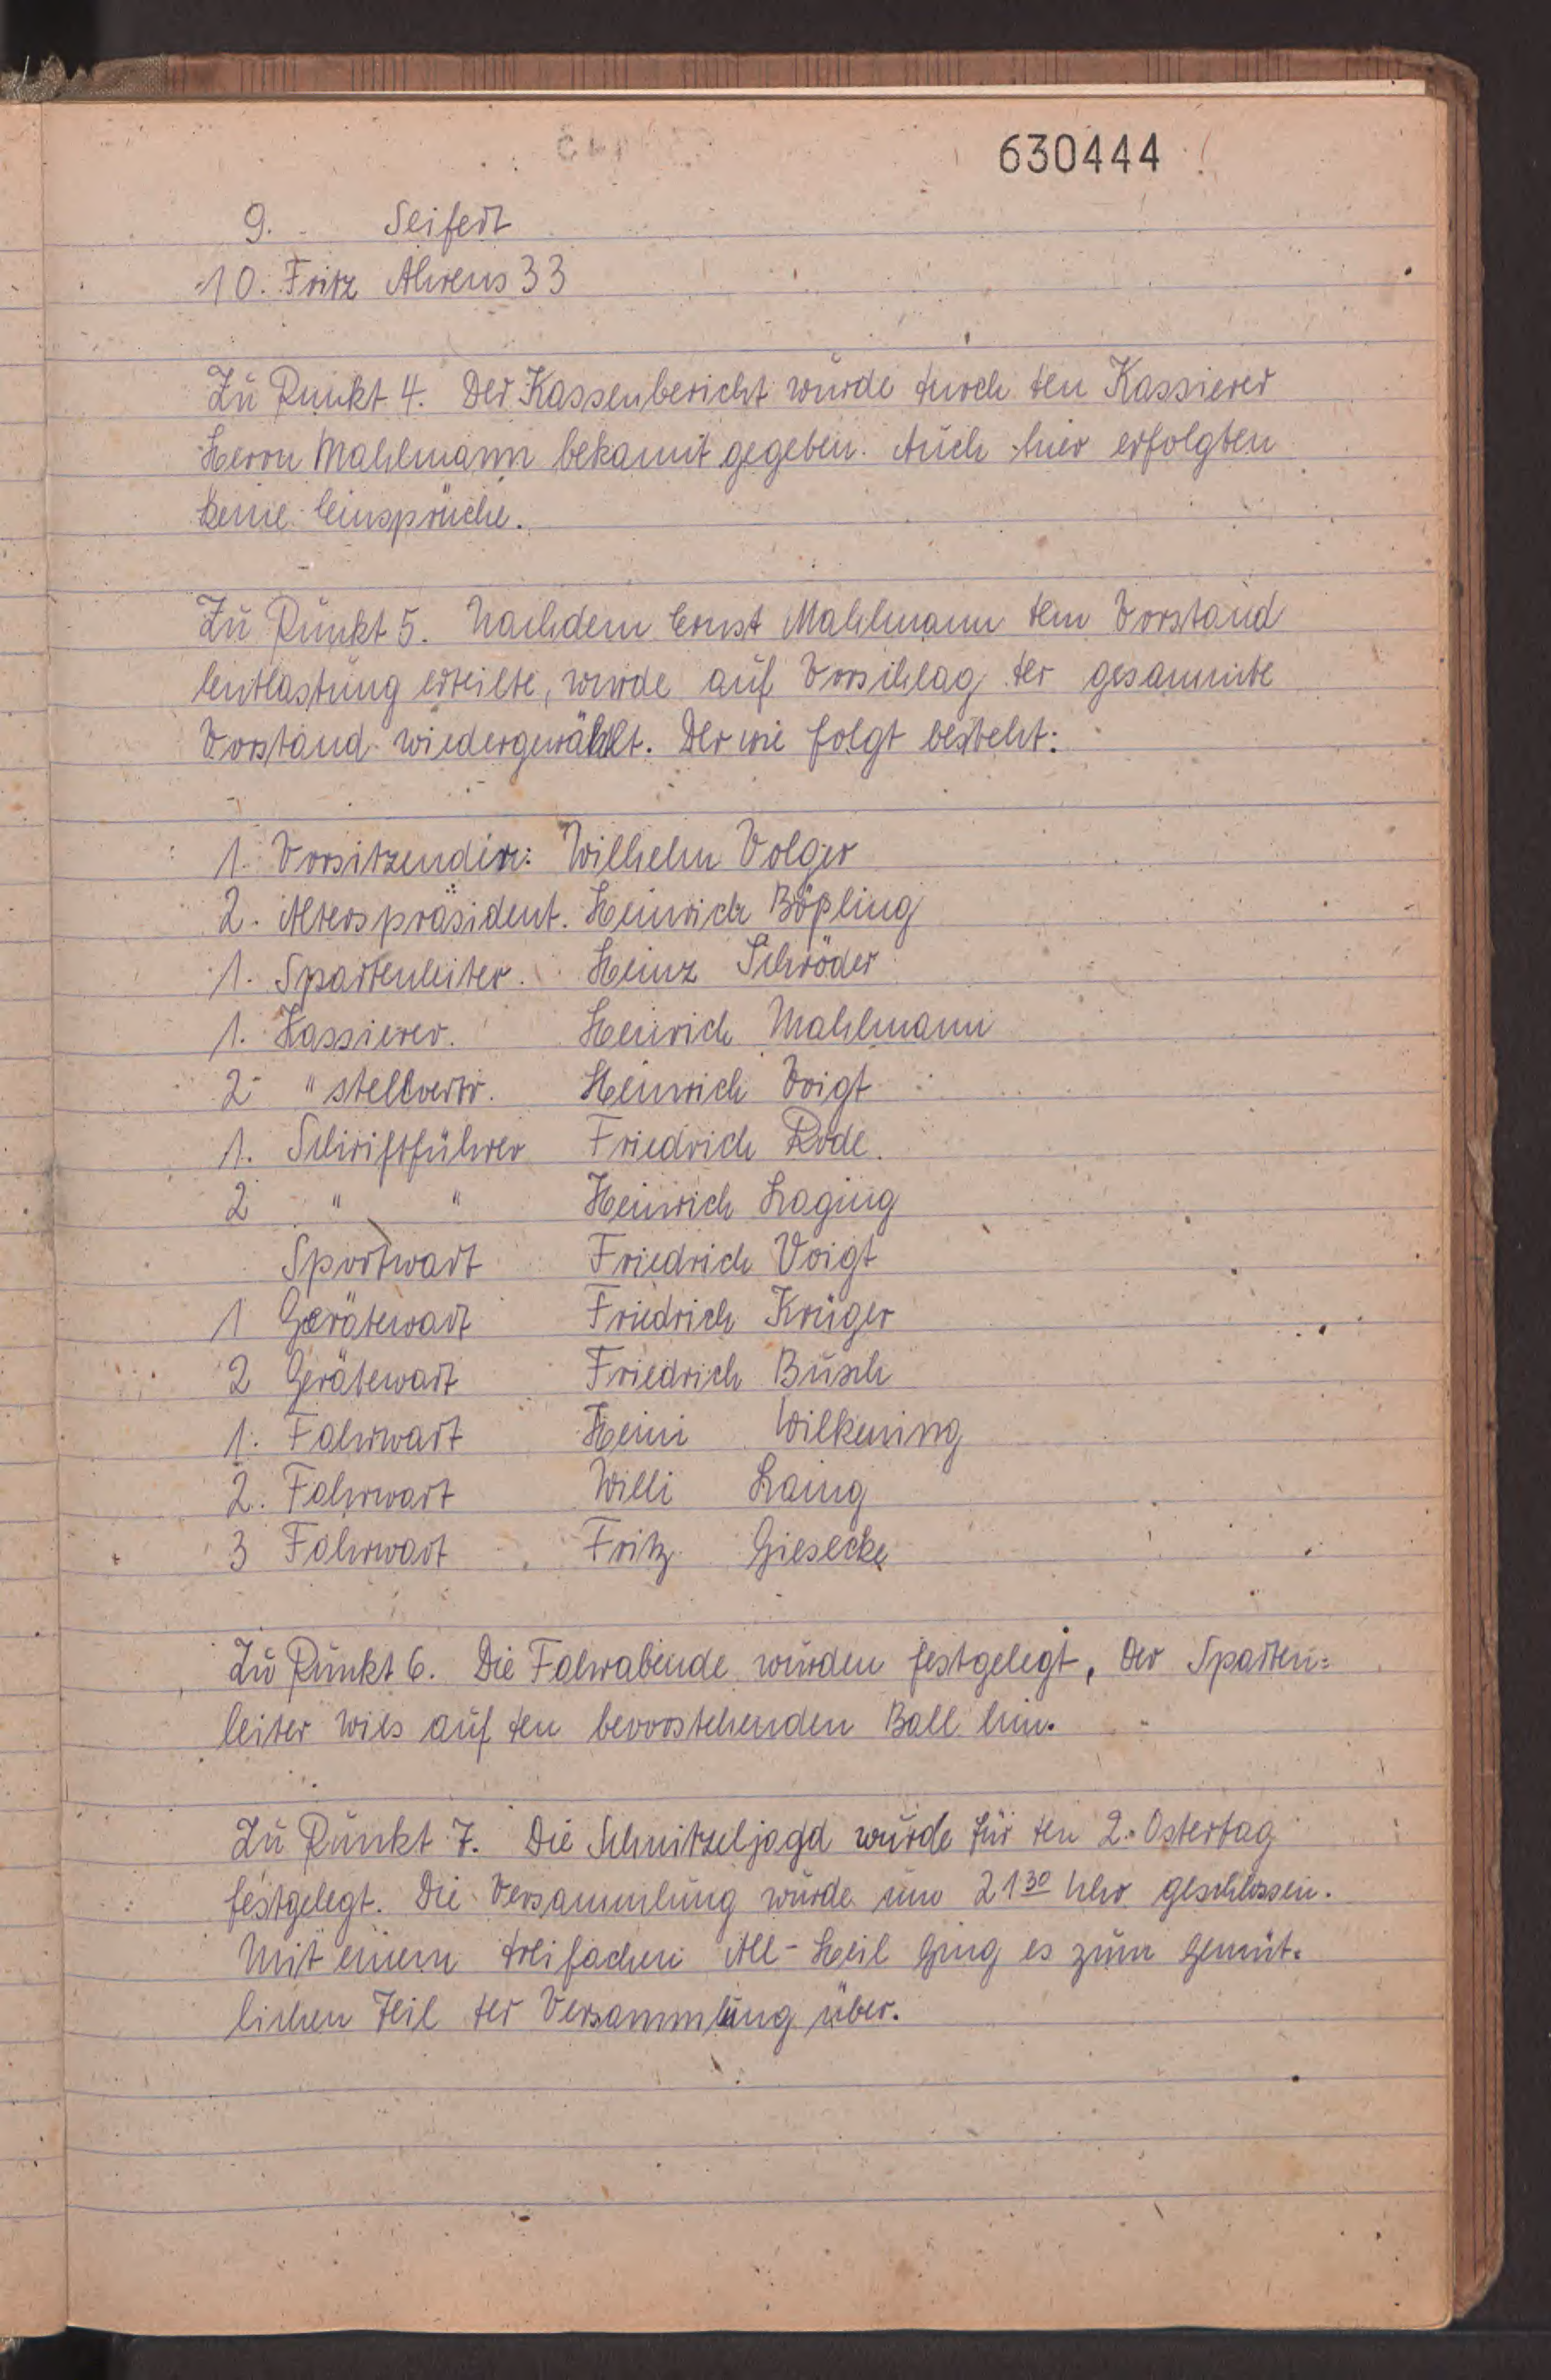 630444
9. Seifert
10. Fritz Ahrens 33
Zu Punkt 4. Der Kassenbericht wurde durch den Kassierer
Herrn Mahlmann bekannt gegeben. Auch hier erfolgten
keine Einsprüche.
Zu Punkt 5. Nachdem Ernst Mahlmann dem Vorstand
Entlastung erteilte, wurde auf Vorschlag der gesammte
Vorstand wiedergewählt. Der wie folgt besteht:
1. Vorsitzender: Wilhelm Volger
2. Alterspräsident. Heinrich Böpling
1. Spartenleiter. Heinz Schröder
1. Kassierer. Heinrich Mahlmann
2 " stellvertr. Heinrich Voigt
1. Schriftführer Friedrich Rode.
2 " " Heinrich Laging
Sportwart Friedrich Voigt
1 Gerätewart Friedrich Krüger
2 Gerätewart Friedrich Busch
1. Fahrwart Heini Wilkening
2. Fahrwart Willi Laing
3 Fahrwart Fritz Giesecke
Zu Punkt 6. Die Fahrabende wurden festgelegt, der Sparten=
leiter wies auf den bevorstehenden Ball hin.
Zu Punkt 7. Die Schnitzeljagd wurde für den 2. Ostertag
festgelegt. Die Versammlung wurde um 21 30 Uhr geschlossen.
Mit einem dreifachen All-Heil ging es zum gemüt-
lichen Teil der Versammlung über.